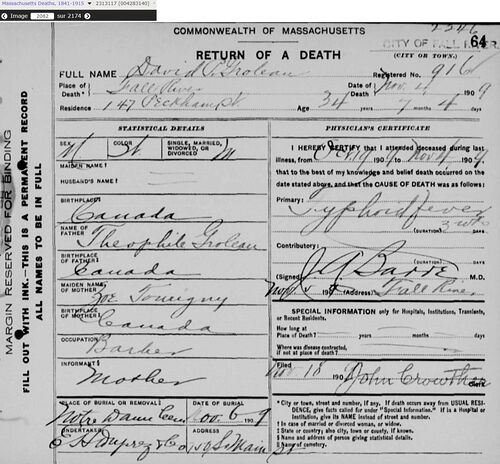 Massachusetts Deaths, 1841-1915 2313117 (004283140)
Image 2082 sur 2174
2346
COMMONWEALTH OF MASSACHUSETTS
CITY OF FALL RIVER. 64
(CITY OR TOWN.)
RETURN OF A DEATH
FULL NAME David Groleau Registered No. 916
Place of Death* Fall River Date of Death Nov. 4 1909
Residence 147 Peckham St. Age 34 years 7 months 4 days
STATISTICAL DETAILS
SEX M COLOR W SINGLE, MARRIED, WIDOWED, OR DIVORCED M
MAIDEN NAME†
HUSBAND'S NAME†
BIRTHPLACE‡ Canada
NAME OF FATHER Theophile Groleau
BIRTHPLACE OF FATHER‡ Canada
MAIDEN NAME OF MOTHER Zoe Tourigny
BIRTHPLACE OF MOTHER‡ Canada
OCCUPATION Barber
INFORMANT§ Mother
PLACE OF BURIAL OR REMOVAL¶ Notre Dame Cem DATE OF BURIAL Nov. 6 1909
UNDERTAKER ADDRESS
& Co S. Main St
PHYSICIAN'S CERTIFICATE
I HEREBY CERTIFY that I attended deceased during last
illness, from Oct. 19 1909 to Nov 4 1909,
that to the best of my knowledge and belief death occurred on the
date stated above, and that the CAUSE OF DEATH was as follows:
Primary: Typhoid fever
3 wks
(DURATION) DAYS
Contributory:
(DURATION) DAYS
(Signed) J. A. Barre M.D.
Nov. 4 190 (Address) Fall River
SPECIAL INFORMATION only for Hospitals, Institutions, Transients, or Recent Residents.
How long at Place of Death? years months days
Where was disease contracted, if not at place of death?
Filed Nov 18 190 John Crowther Clerk
* City or town, street and number, if any. If death occurs away from USUAL RESI-
DENCE, give facts called for under "Special Information." If in a Hospital or
institution, give its NAME instead of street and number.
† In case of married or divorced woman, or widow.
‡ State or country; also city, town or county, if known.
§ Name and address of person giving statistical details.
¶ Name of cemetery.
MARGIN RESERVED FOR BINDING
FILL OUT WITH INK.—THIS IS A PERMANENT RECORD
ALL NAMES TO BE IN FULL